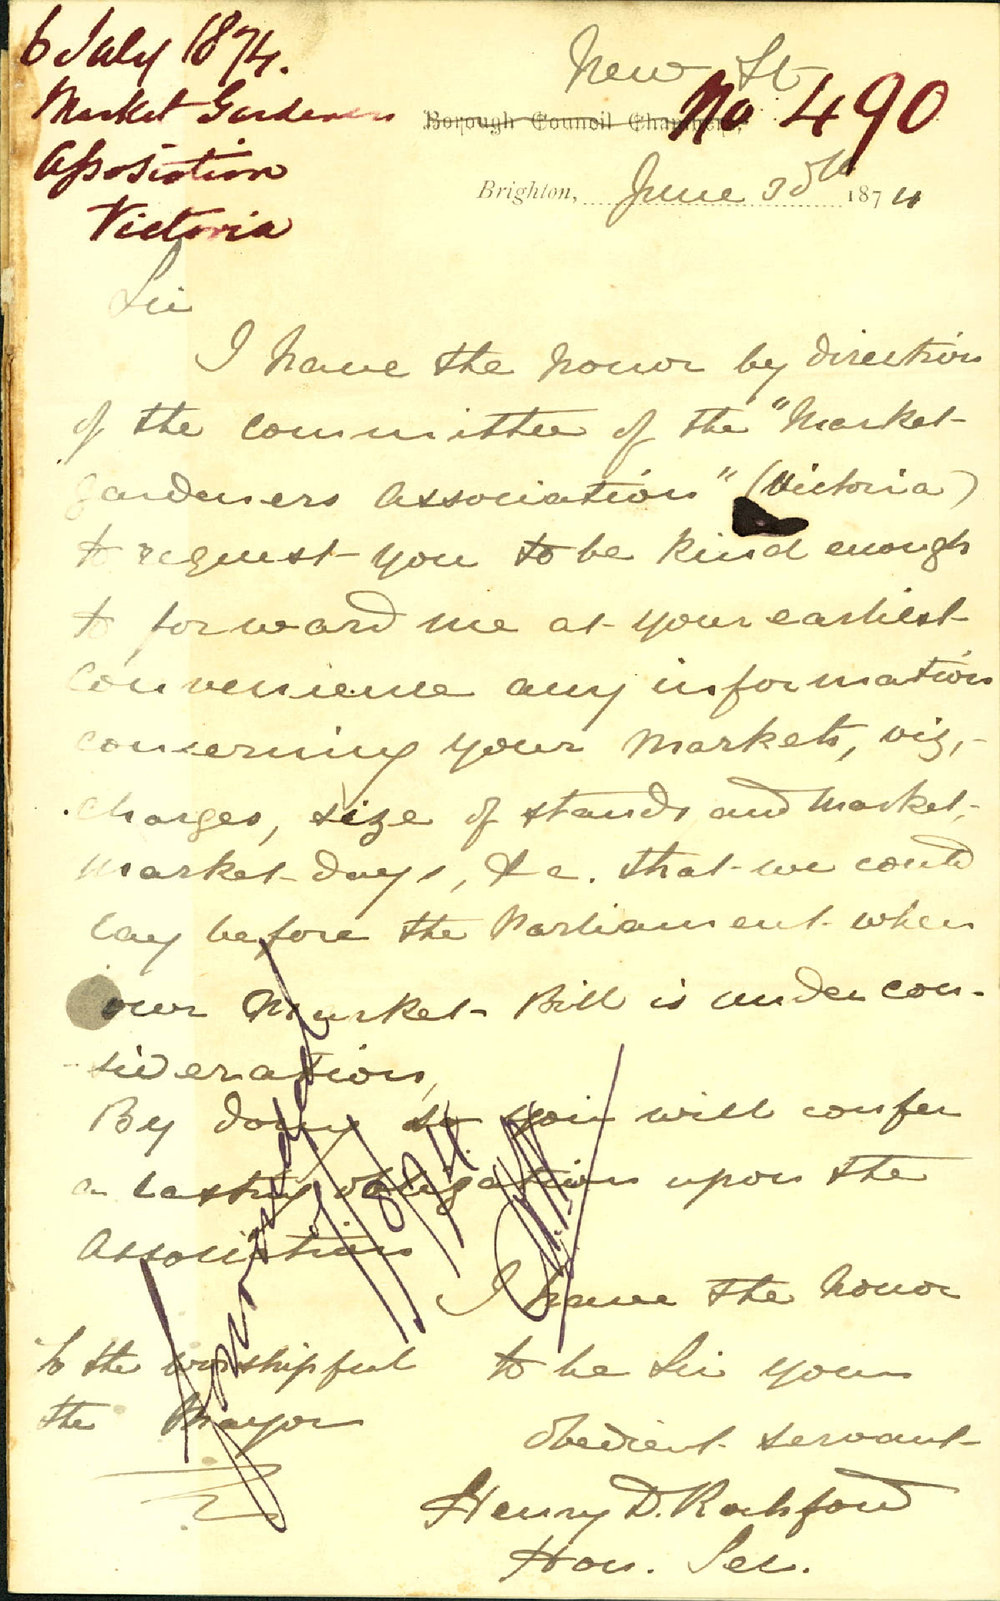 6 July 1874.
Market Gardeners
Association
Victoria
New St
No 490
Borough Council Chambers,
Brighton, June 30th 1874
Sir
I have the honor by direction
of the Committee of the "Market
gardeners association" (Victoria)
to request you to be kind enough
to forward me at your earliest
convenience any information
concerning your Markets, viz,-
charges, size of stands and market,
market-days, &c. that we could
lay before the Parliament when
our Market Bill is under con-
-sideration,
By doing so you will confer
a lasting obligation upon the
association
I have the honor
to be Sir your
obedient servant
Henry D. Rochford
Hon. Sec.
To the worshipful
the Mayor